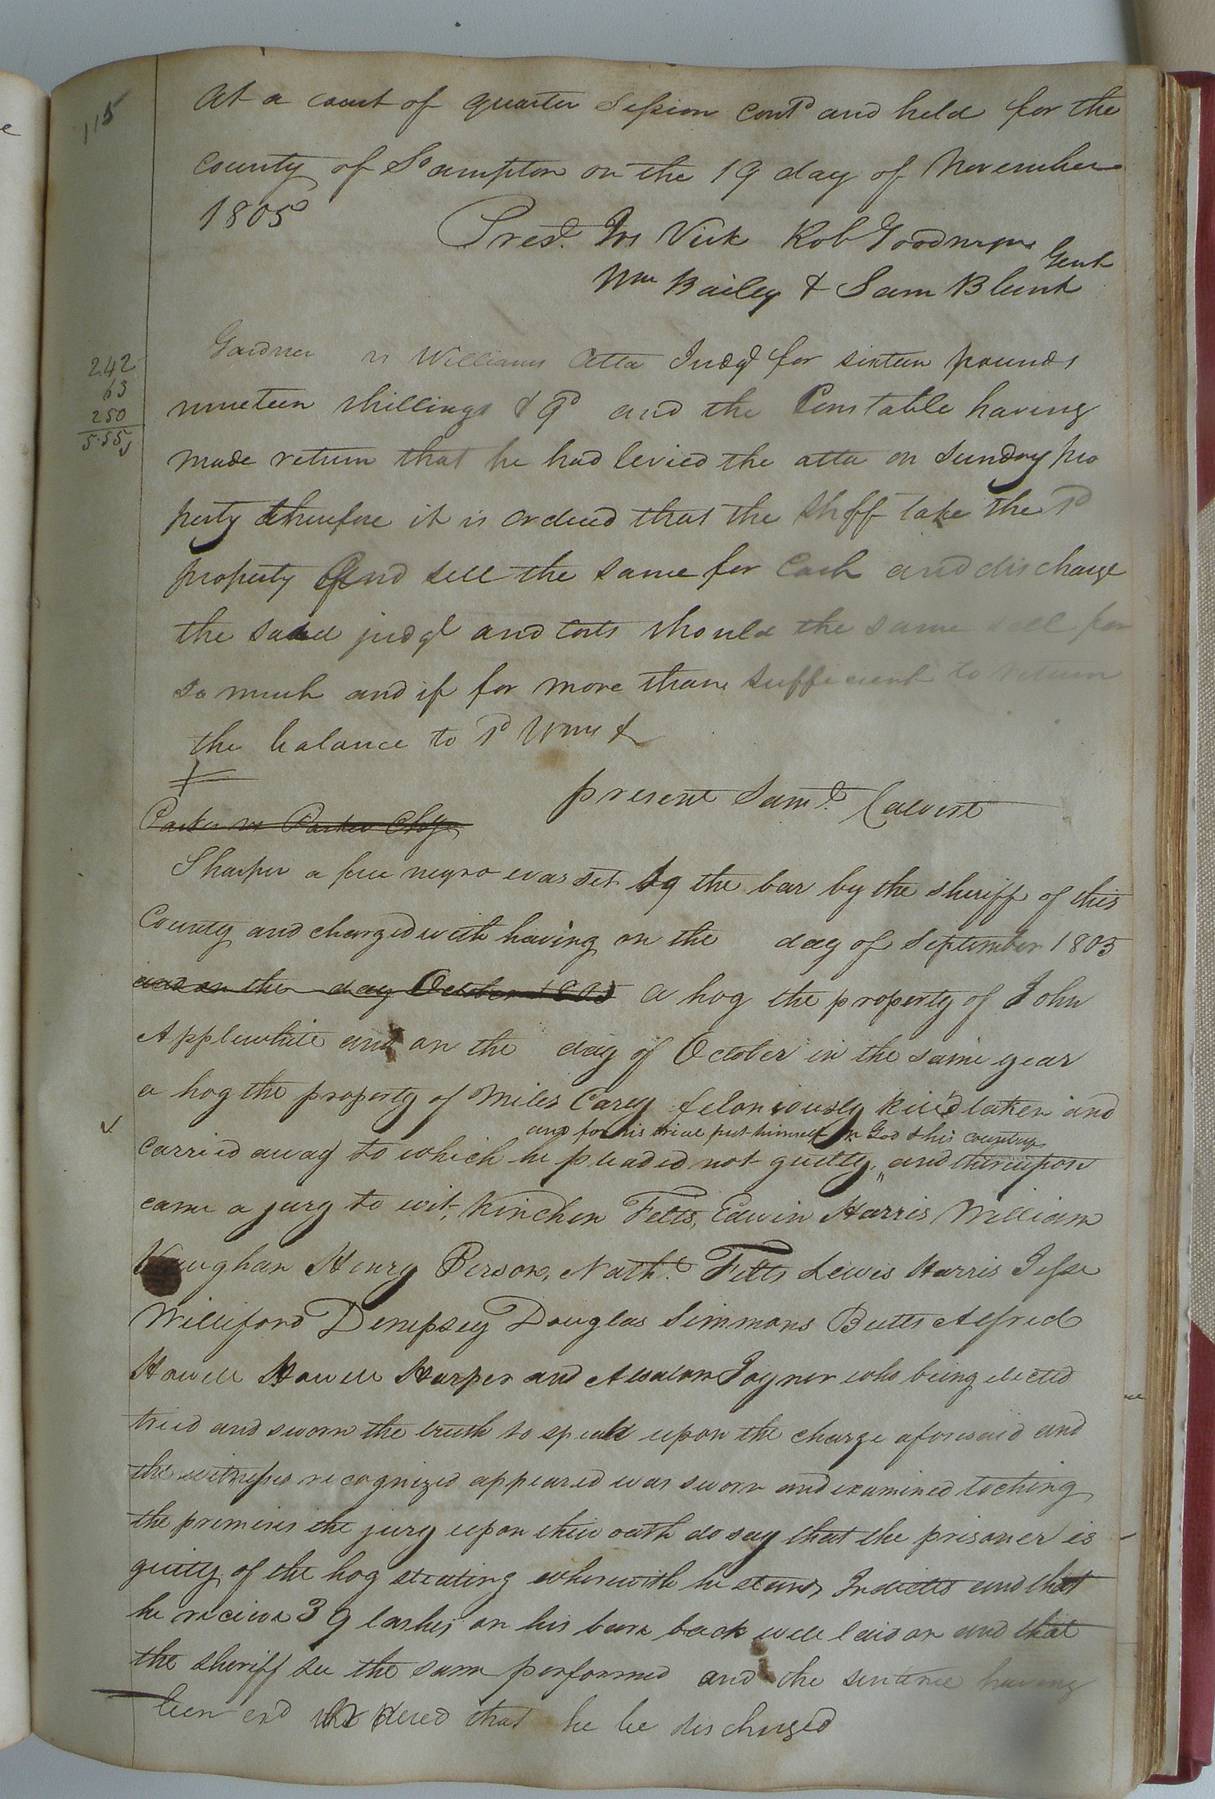 115
At a court of quarter Session contd and held for the
County of So ampton on the 19 day of November
1805
Presd. Jos Vick Rob Goodwyn
Gent
Wm Bailey & Sam Blunt
Gardner vs Williams Atta Judgt for sixteen pounds
242
63
250
5.55
nineteen shillings & 9d and the Constable having
made return that he had levied the atta on Sunday pro
perty therefore it is ordered that the Shff take the sd
property and sell the same for Cash and discharge
the said judgt and Costs should the same sell for
so much and if for more than sufficient to return
the balance to sd Wms &
present Saml. Calvert
Parker vs Parker Chy
Sharper a free negro was set to the bar by the sheriff of this
County and charged with having on the day of September 1805
and on the day October 1805 a hog the property of John
Applewhite and on the day of October in the same year
a hog the property of Miles Carey feloniously kill'd taken and
and for his trial put himself on God & his country
carried away to which he pleaded not guilty, and thereupon
came a jury to wit, Kinchen Felts, Edwin Harris William
Vaughan Henry Person, Nathl. Felts Lewis Harris Jesse
Williford Dempsey Douglas Simmons Butts Alfred
Howell Howell Harper and Absalom Joyner who being elected
tried and sworn the truth to speak upon the charge aforesaid and
the witnesses recognized appeared was sworn and examined toching
the premises the jury upon their oath do say that the prisoner is
guilty of the hog stealing wherewith he stands Indicted and that
he receive 39 lashes on his bare back well laid on and that
the sheriff see the same performed and the sentence having
been exd ordered that he be discharged